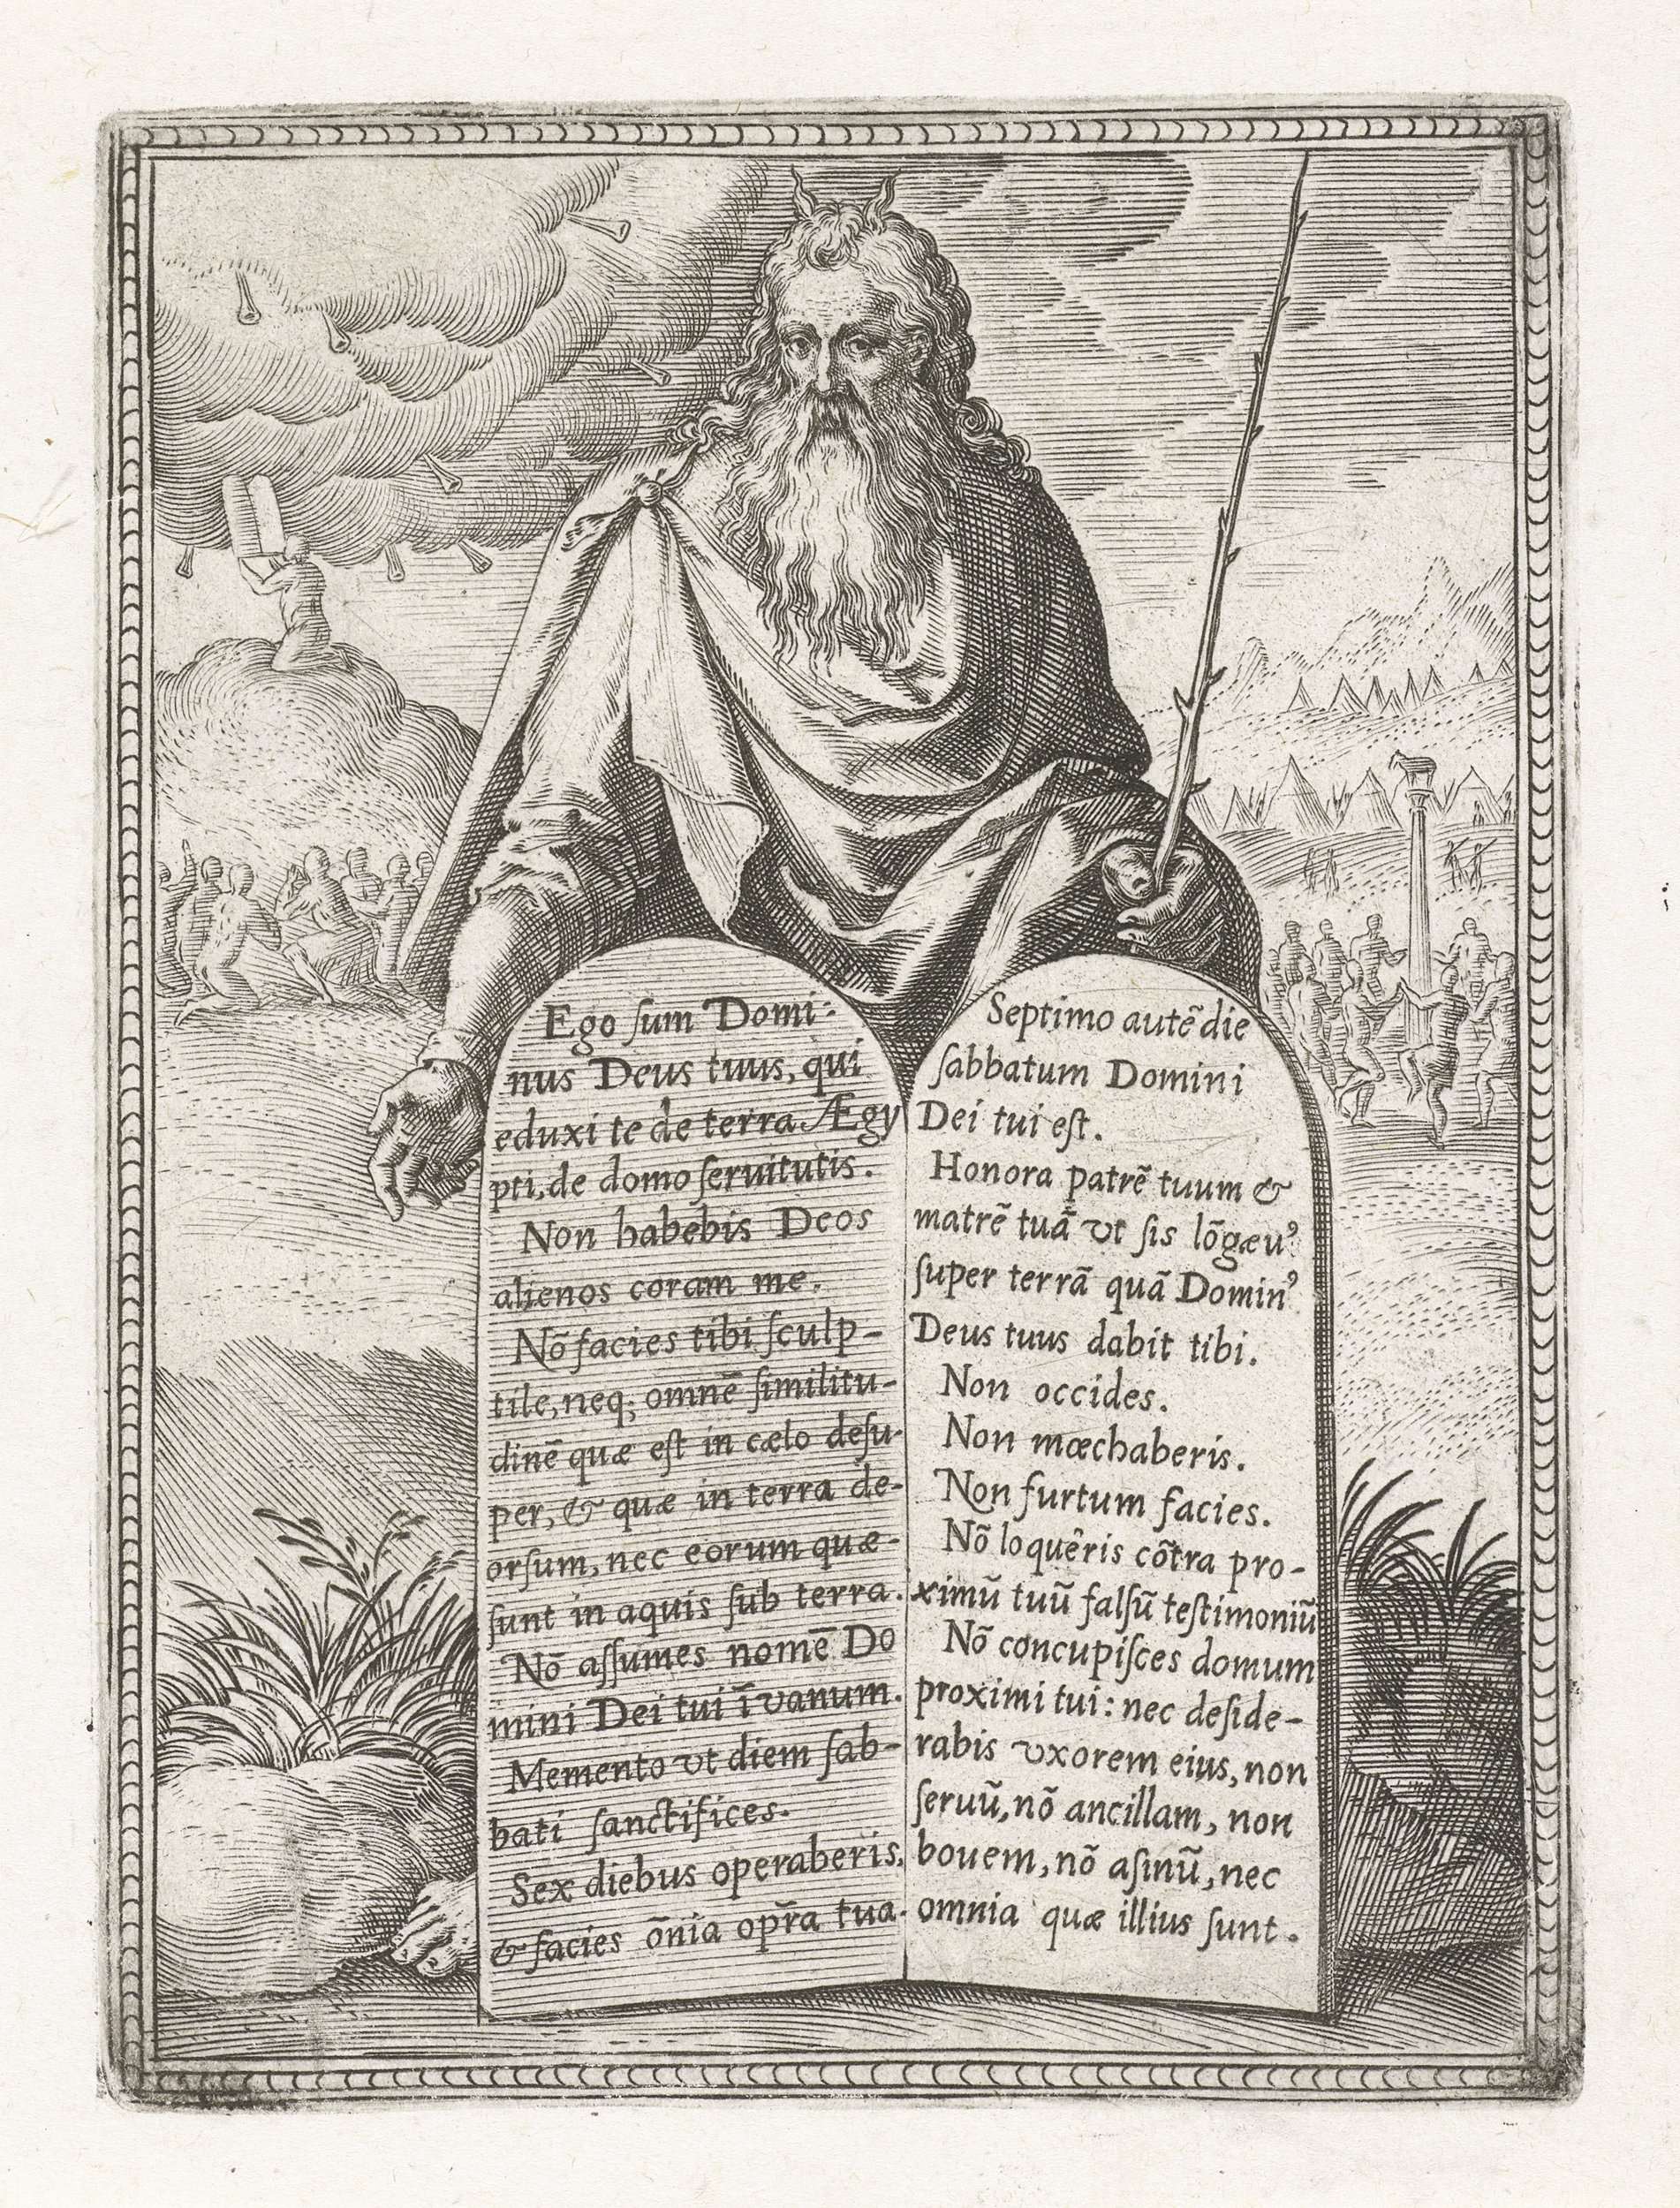 Ego ſum Domi-
nus Deus tuus, qui
eduxi te de terra Ægy
pti, de domo ſeruitutis.
Non habebis Deos
alienos coram me.
Nõ facies tibi ſculp-
tile, neq; omnẽ ſimilitu-
dinẽ quæ eſt in cælo deſu-
per, & quæ in terra de-
orſum, nec eorum quæ-
ſunt in aquis ſub terra.
Nõ aſſumes nomẽ Do
mini Dei tui ĩ vanum.
Memento vt diem ſab-
bati ſanctifices.
Sex diebus operaberis,
& facies õnia op̃ra tua.
Septimo autẽ die
ſabbatum Domini
Dei tui eſt.
Honora patrẽ tuum &
matrẽ tuã vt ſis lõgæuꝰ
ſuper terrã quã Dominꝰ
Deus tuus dabit tibi.
Non occides.
Non mœchaberis.
Non furtum facies.
Nõ loquêris cõtra pro-
ximũ tuũ falſũ teſtimoniũ
Nõ concupiſces domum
proximi tui: nec deſide-
rabis vxorem eius, non
ſeruũ, nõ ancillam, non
bouem, nõ aſinũ, nec
omnia quæ illius ſunt.